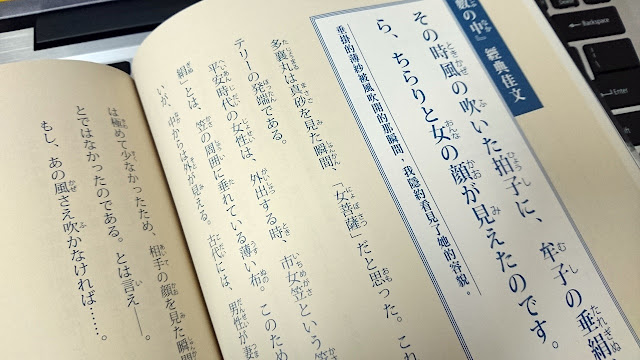 藪の中』 經典佳文
その時風の吹いた拍子に、牟子の垂絹
ら、ちらりと女の顔が見えたのです。
垂掛的薄紗被風吹開的那瞬間,我隱約看見了她的容貌。
多襄丸は真砂を見た瞬間、「女菩薩」だと思った。これ
テリーの発端である。
平安時代の女性は、外出する時、市女笠という笠
絹」とは、笠の周囲に垂れている薄い布。このため
いが、中からは外が見える。古代には、男性が妻
は極めて少なかったため、相手の顔を見た瞬間
とではなかったのである。とは言え――。
もし、あの風さえ吹かなければ……。
Backspace
Enter